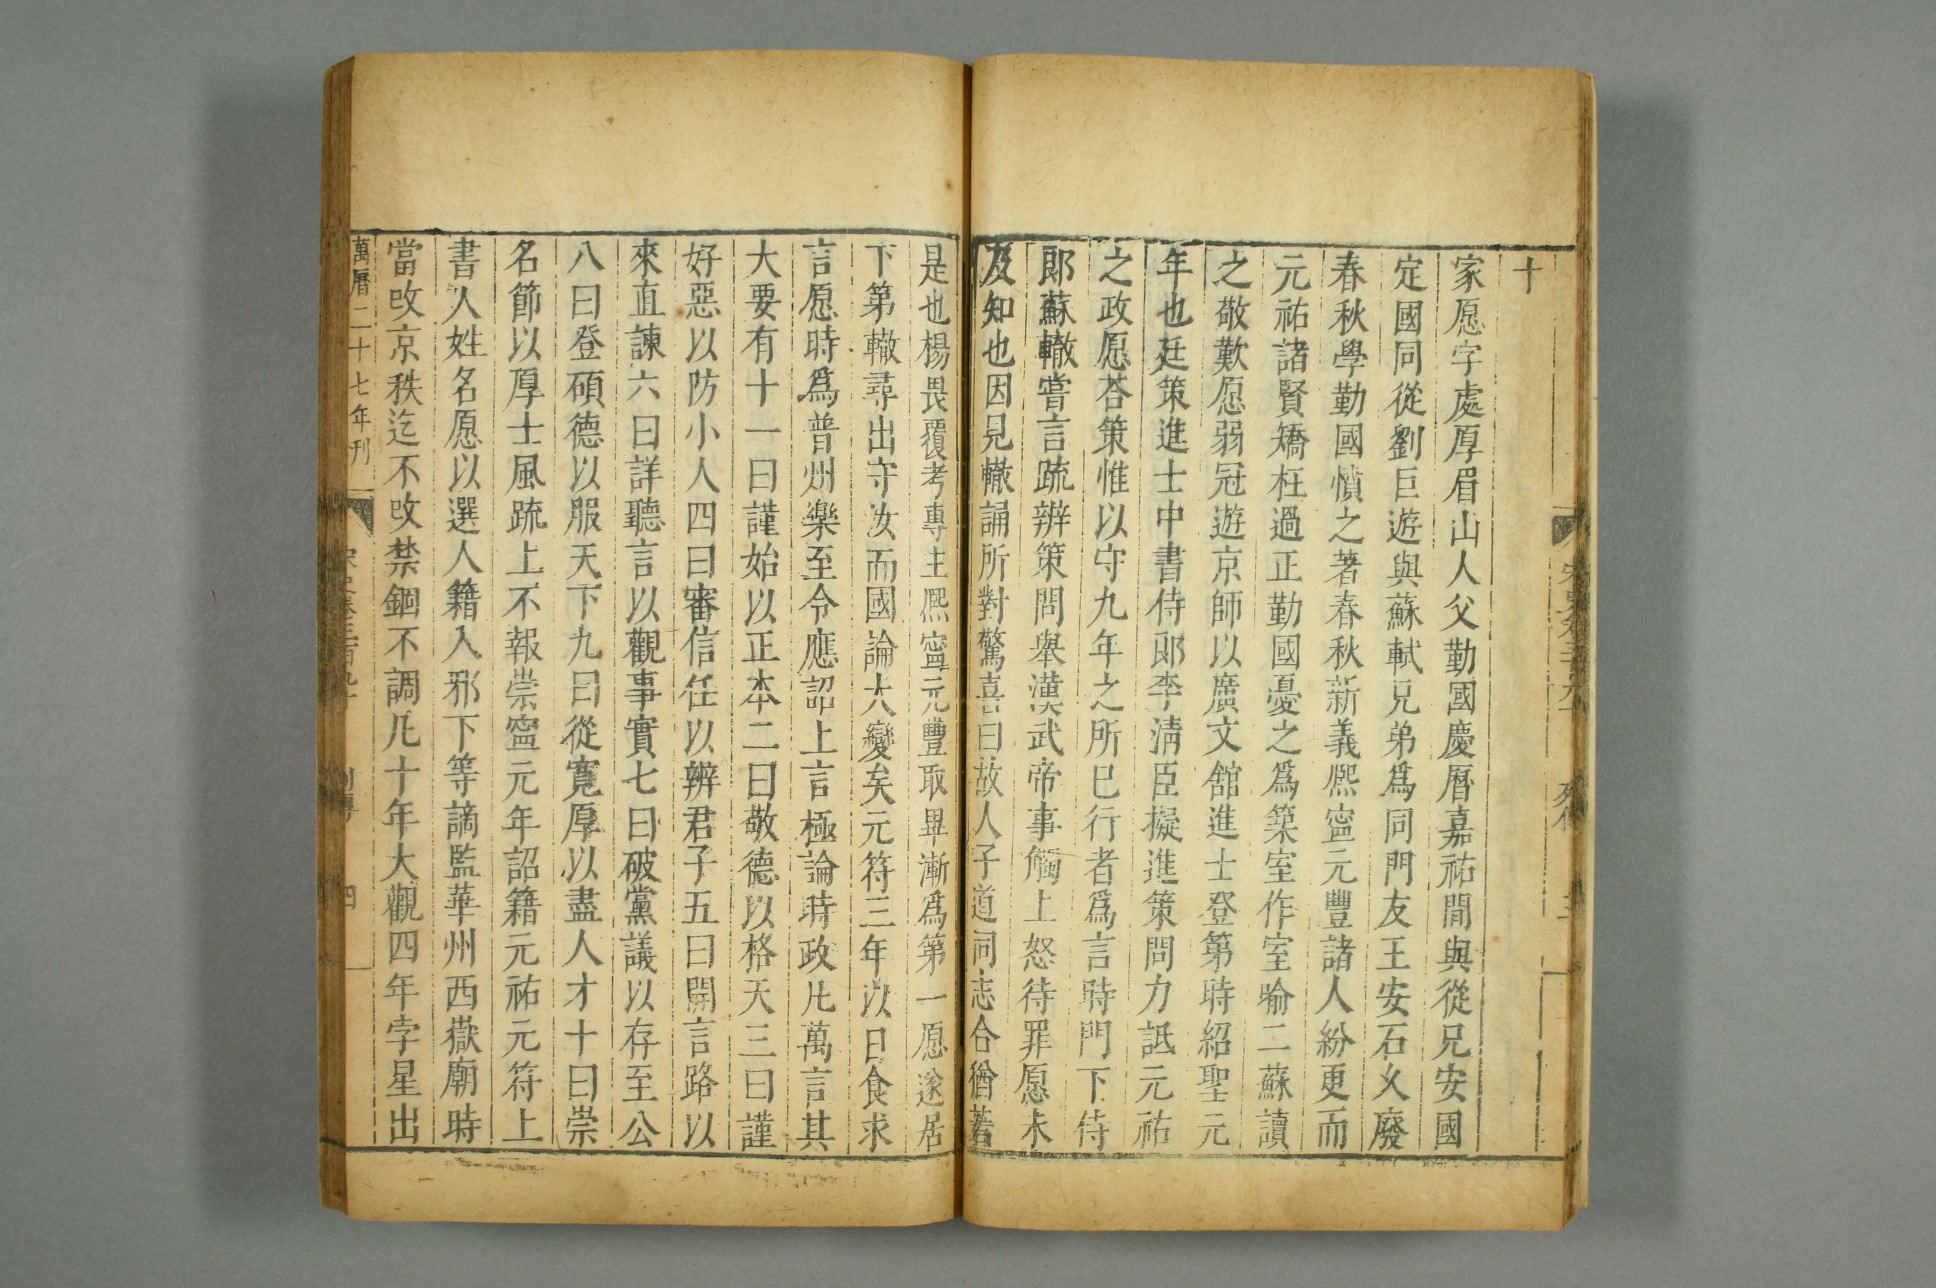 十
家愿字處厚眉山人父勤國慶曆嘉祐間與從兄安國
定國同從劉巨遊與蘇軾兄弟爲同門友王安石久廢
春秋學勤國憤之著春秋新義熙寧元豐諸人紛更而
元祐諸賢矯枉過正勤國憂之爲築室作室喻二蘇讀
之敬歎愿弱冠遊京師以廣文舘進士登第時紹聖元
年也廷策進士中書侍郎李淸臣擬進策問力詆元祐
之政愿荅策惟以守九年之所已行者爲言時門下侍
郎蘇轍嘗言疏辨策問舉漢武帝事觸上怒待罪愿未
及知也因見轍誦所對驚喜曰故人子道同志合猶若
是也楊畏覆考專主熙寧元豐取畢漸爲第一愿遂居
下第轍尋出守汝而國論大變矣元符三年以日食求
言愿時爲普州樂至令應詔上言極論時政凡萬言其
大要有十一曰謹始以正本二曰敬德以格天三曰謹
好惡以防小人四曰審信任以辨君子五曰開言路以
來直諫六曰詳聽言以觀事實七曰破黨議以存至公
八曰登碩德以服天下九曰從寬厚以盡人才十曰崇
名節以厚士風疏上不報崇寧元年詔籍元祐元符上
書人姓名愿以選人籍入邪下等謫監華州西嶽廟時
當改京秩迄不改禁錮不調凡十年大觀四年孛星出
萬曆二十七年刊 宋史卷三百九十 列傳 四